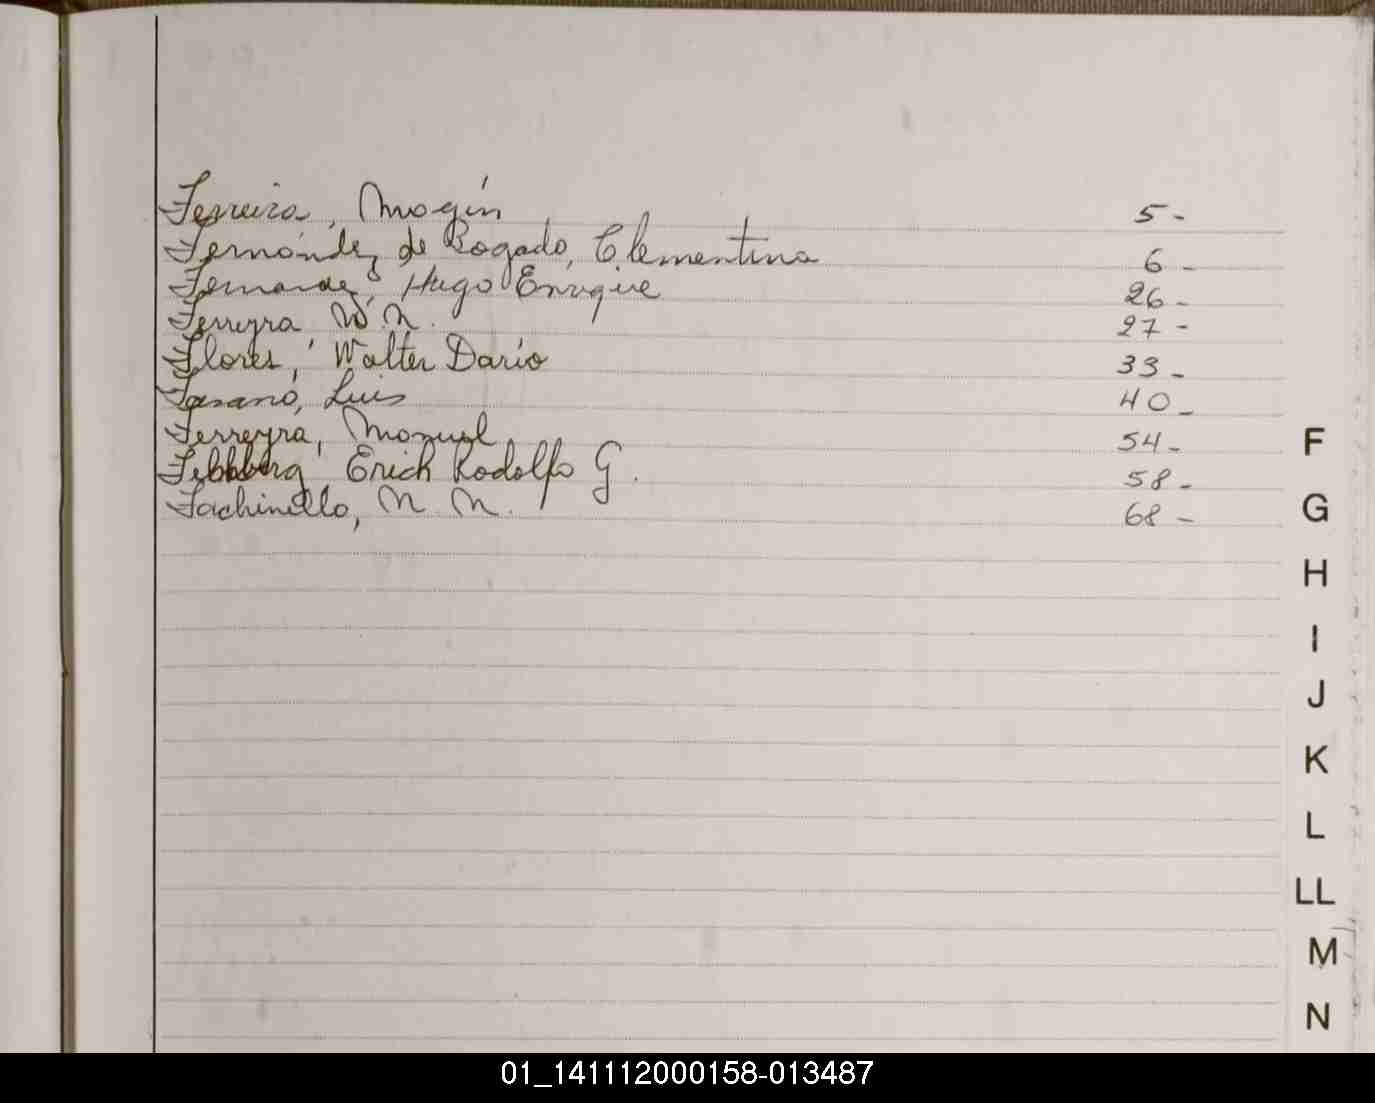 Ferreira, Mogín 5-
Fernández de Bogado, Clementina 6-
Fernandez, Hugo Enrique 26-
Ferreyra N.N. 27-
Flores, Walter Darío 33-
Fasano, Luis 40-
Ferreyra, Manuel 54-
Erich Rodolfo G. 58-
Fachinello, N. N. 68-
F
G
H
I
J
K
L
LL
M
N
01_141112000158-013487